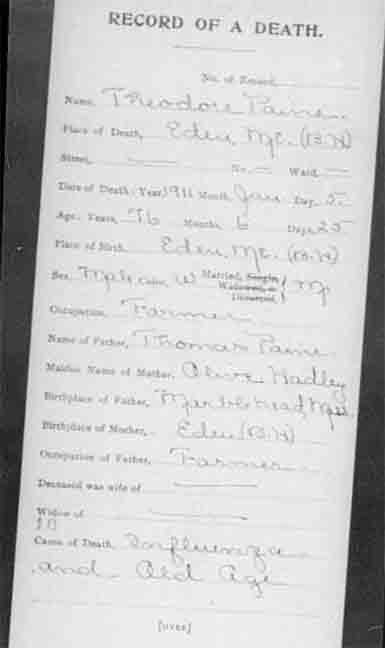 RECORD OF A DEATH.
No. of Record,
Name, Theodore Paine
Place of Death, Eden, Me. (B.H)
Street, — No. — Ward, —
Date of Death: Year, 1911 Month, Jan Day, 5
Age, Years, 76 Months, 6 Days, 25
Place of Birth, Eden, Me. (B.H)
Sex, Male Color, W Married, Single, Widowed, or Divorced, } M
Occupation, Farmer
Name of Father, Thomas Paine
Maiden Name of Mother, Olive Hadley
Birthplace of Father, Marblehead, Mass
Birthplace of Mother, Eden (B.H)
Occupation of Father, Farmer
Deceased was wife of —
Widow of —
Cause of Death, Influenza
and Old Age
[OVER]